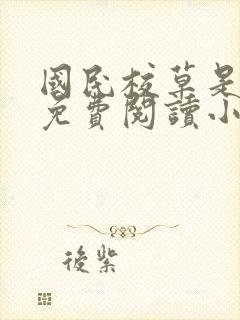 國民校草是
免費閱讀小
後紫